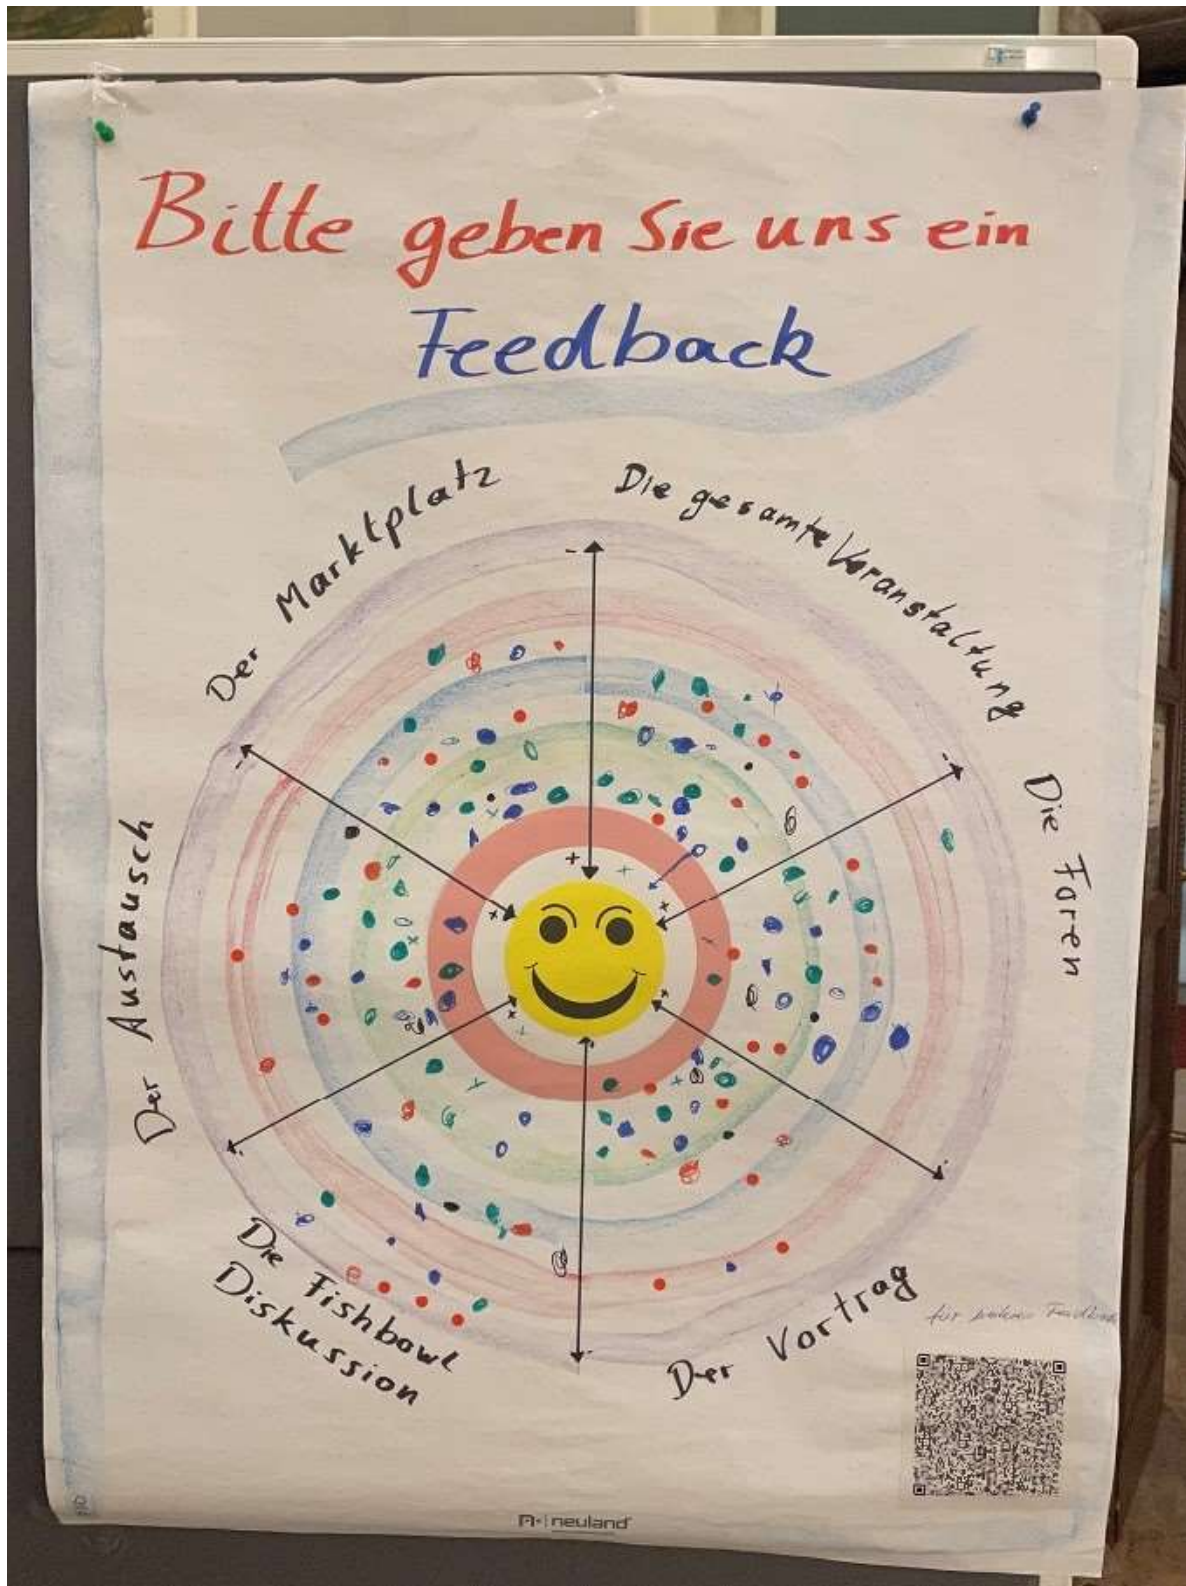 Bitte geben Sie uns ein
Feedback
Der Marktplatz
Die gesamte Veranstaltung
Die Foren
Der Austausch
Die Fishbowl
Diskussion
Der Vortrag
für Feedback
neuland